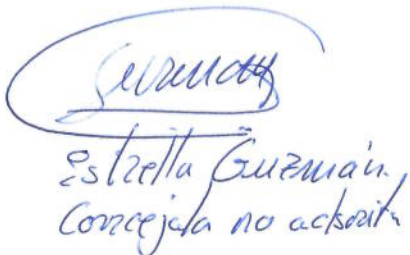 Guzmán
Estrella Guzmán.
Concejala no adscrita